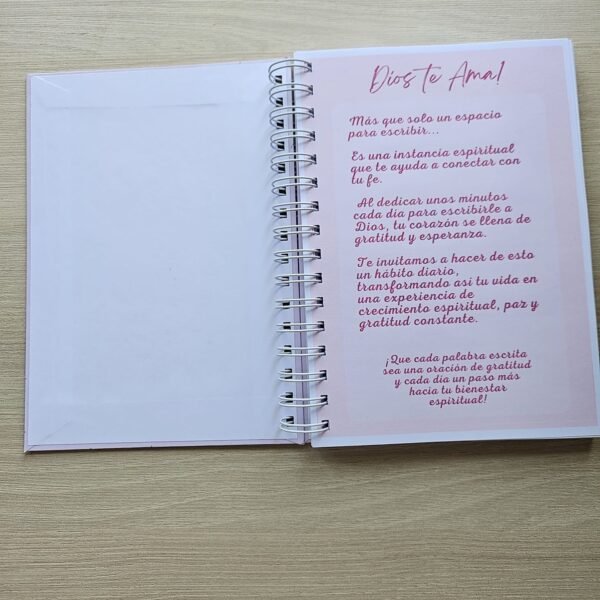 Dios te Ama!
Más que solo un espacio
para escribir...
Es una instancia espiritual
que te ayuda a conectar con
tu fe.
Al dedicar unos minutos
cada día para escribirle a
Dios, tu corazón se llena de
gratitud y esperanza.
Te invitamos a hacer de esto
un hábito diario,
transformando así tu vida en
una experiencia de
crecimiento espiritual, paz y
gratitud constante.
¡Que cada palabra escrita
sea una oración de gratitud
y cada día un paso más
hacia tu bienestar
espiritual!